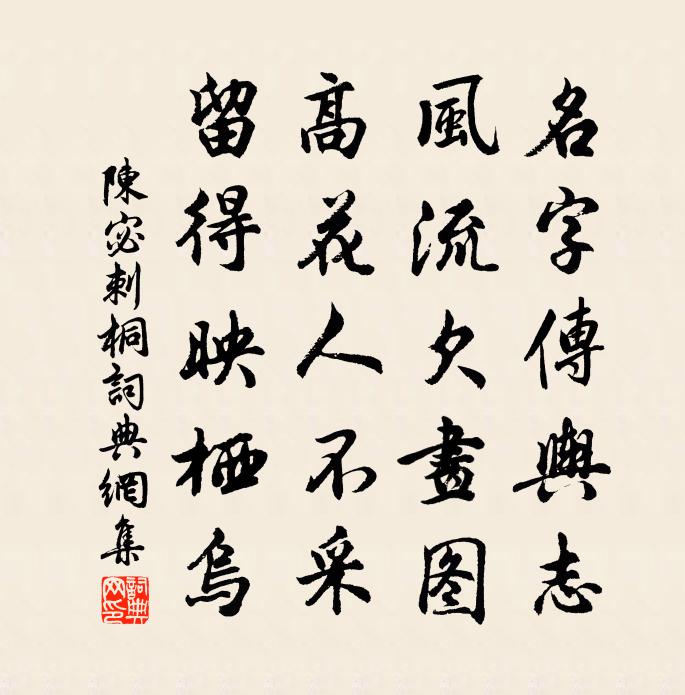 名字傳輿志
風流欠畫图
高花人不采
留得映栖烏
陳宓刺桐詞典網集
詞典網印